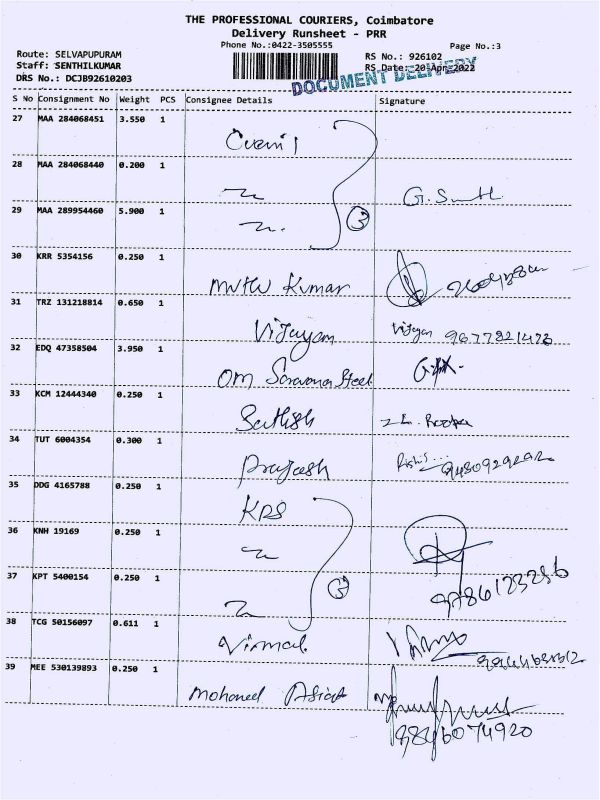 THE PROFESSIONAL COURIERS, Coimbatore
Delivery Runsheet - PRR
Phone No.:0422-3505555
Page No.:3
Route: SELVAPUPURAM
Staff: SENTHILKUMAR
DRS No.: DCJB92610203
RS No.: 926102
RS Date: 20-Apr-2022
DOCUMENT DELIVERY
S No Consignment No Weight PCS Consignee Details Signature
27 MAA 284068451 3.550 1
28 MAA 284068440 0.200 1
29 MAA 289954460 5.900 1 3
30 KRR 5354156 0.250 1 Muthu Kumar
31 TRZ 131218814 0.650 1 Vijayam Vijayan 9677821473
32 EDQ 47358504 3.950 1 OM Saravana Steel
33 KCM 12444340 0.250 1 Sathish
34 TUT 6004354 0.300 1
35 DDG 4165788 0.250 1 KPS
36 KNH 19169 0.250 1
37 KPT 5400154 0.250 1 3 9786123256
38 TCG 50156097 0.611 1 Virmal
39 MEE 530139893 0.250 1 Mohamed
9846074920